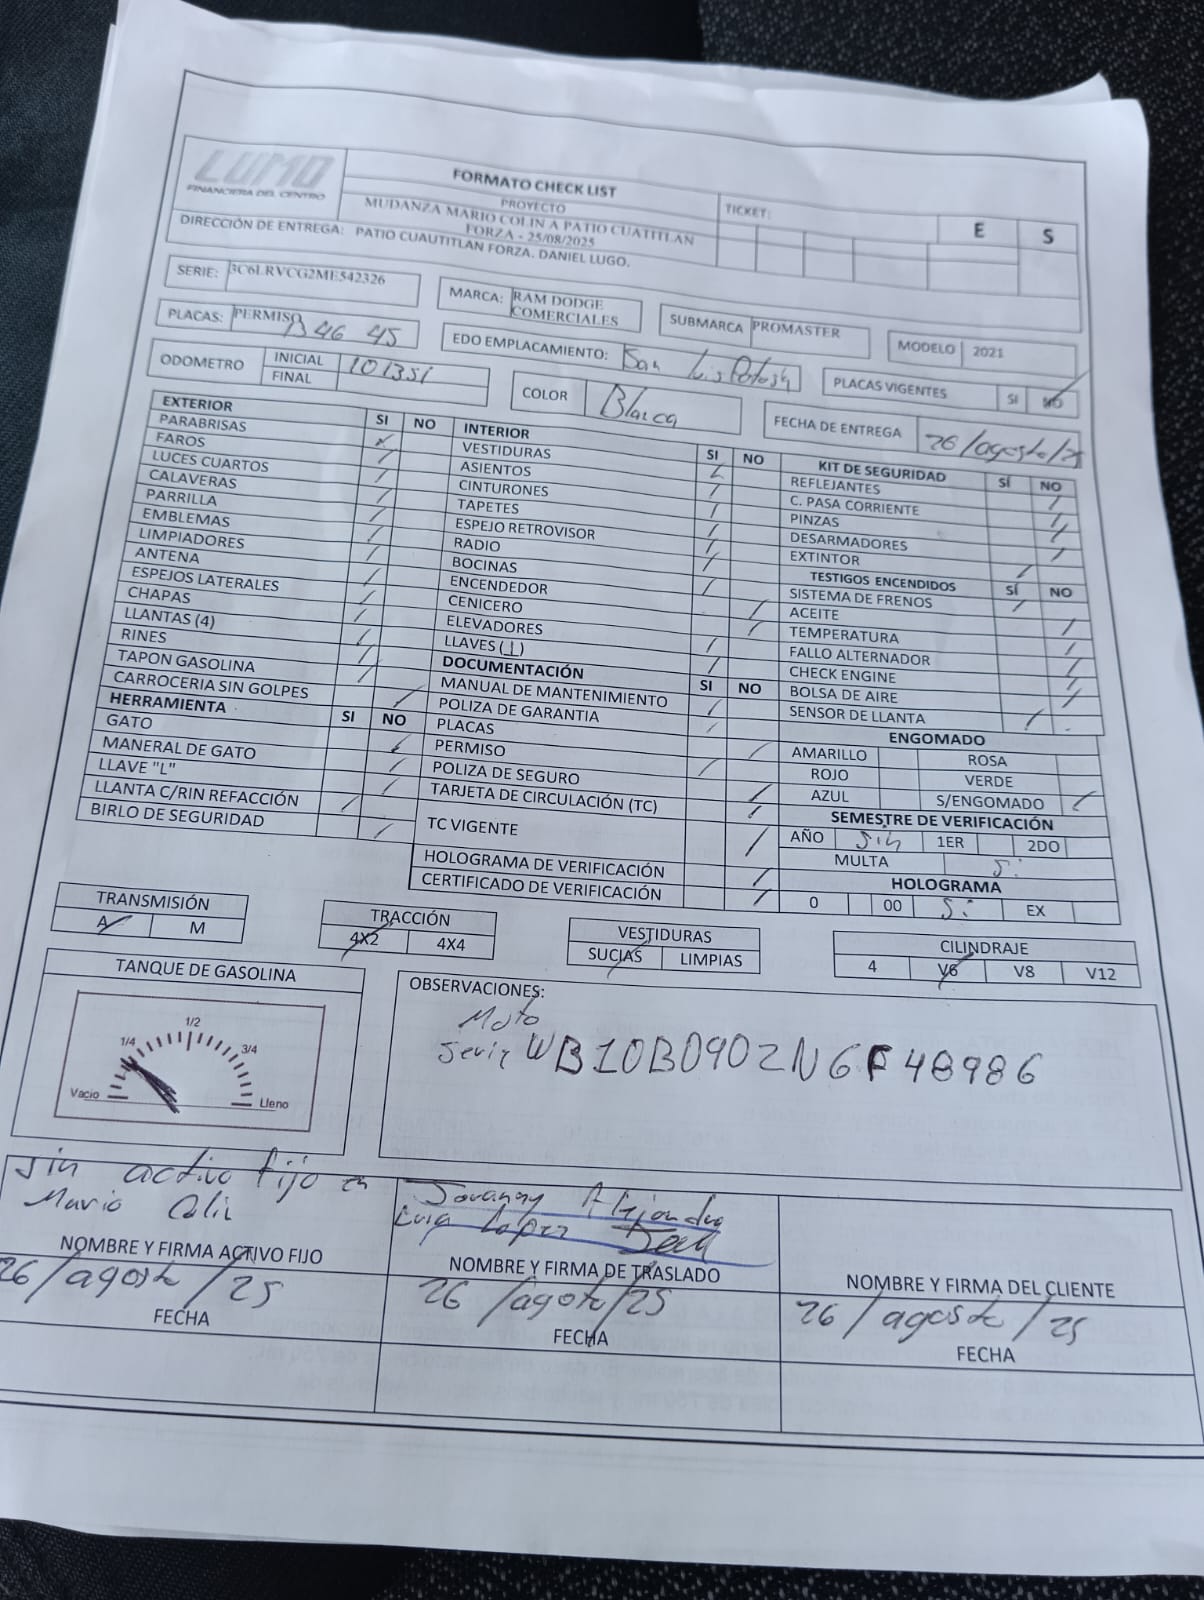 LUMO
FINANCIERA DEL CENTRO
FORMATO CHECK LIST
PROYECTO
MUDANZA MARIO COLIN A PATIO CUATITLAN
FORZA - 25/08/2025
TICKET:
E S
DIRECCIÓN DE ENTREGA: PATIO CUAUTITLAN FORZA. DANIEL LUGO.
SERIE: 3C6LRVCG2ME542326
MARCA: RAM DODGE
COMERCIALES
SUBMARCA PROMASTER
MODELO 2021
PLACAS: PERMISO
46 45
EDO EMPLACAMIENTO: San Luis Potosi
PLACAS VIGENTES SI NO
ODOMETRO INICIAL 101351
FINAL
COLOR Blanca
FECHA DE ENTREGA 26/agosto/25
EXTERIOR SI NO
PARABRISAS
FAROS
LUCES CUARTOS
CALAVERAS
PARRILLA
EMBLEMAS
LIMPIADORES
ANTENA
ESPEJOS LATERALES
CHAPAS
LLANTAS (4)
RINES
TAPON GASOLINA
CARROCERIA SIN GOLPES
HERRAMIENTA SI NO
GATO
MANERAL DE GATO
LLAVE "L"
LLANTA C/RIN REFACCIÓN
BIRLO DE SEGURIDAD
INTERIOR SI NO
VESTIDURAS
ASIENTOS
CINTURONES
TAPETES
ESPEJO RETROVISOR
RADIO
BOCINAS
ENCENDEDOR
CENICERO
ELEVADORES
LLAVES (1)
DOCUMENTACIÓN SI NO
MANUAL DE MANTENIMIENTO
POLIZA DE GARANTIA
PLACAS
PERMISO
POLIZA DE SEGURO
TARJETA DE CIRCULACIÓN (TC)
TC VIGENTE
HOLOGRAMA DE VERIFICACIÓN
CERTIFICADO DE VERIFICACIÓN
KIT DE SEGURIDAD SÍ NO
REFLEJANTES
C. PASA CORRIENTE
PINZAS
DESARMADORES
EXTINTOR
TESTIGOS ENCENDIDOS SÍ NO
SISTEMA DE FRENOS
ACEITE
TEMPERATURA
FALLO ALTERNADOR
CHECK ENGINE
BOLSA DE AIRE
SENSOR DE LLANTA
ENGOMADO
AMARILLO ROSA
ROJO VERDE
AZUL S/ENGOMADO
SEMESTRE DE VERIFICACIÓN
AÑO Sin 1ER 2DO
MULTA Si
HOLOGRAMA
0 00 Si EX
TRANSMISIÓN
A M
TRACCIÓN
4X2 4X4
VESTIDURAS
SUCIAS LIMPIAS
CILINDRAJE
4 V6 V8 V12
TANQUE DE GASOLINA
1/2
1/4 3/4
Vacio Lleno
OBSERVACIONES:
Moto
Serie WB10B0902N6F48986
Sin activo fijo en
Mario Colin
NOMBRE Y FIRMA ACTIVO FIJO
26/agosto/25
FECHA
Jovanny Alejandro
Luna Lopez
NOMBRE Y FIRMA DE TRASLADO
26/agosto/25
FECHA
NOMBRE Y FIRMA DEL CLIENTE
26/agosto/25
FECHA